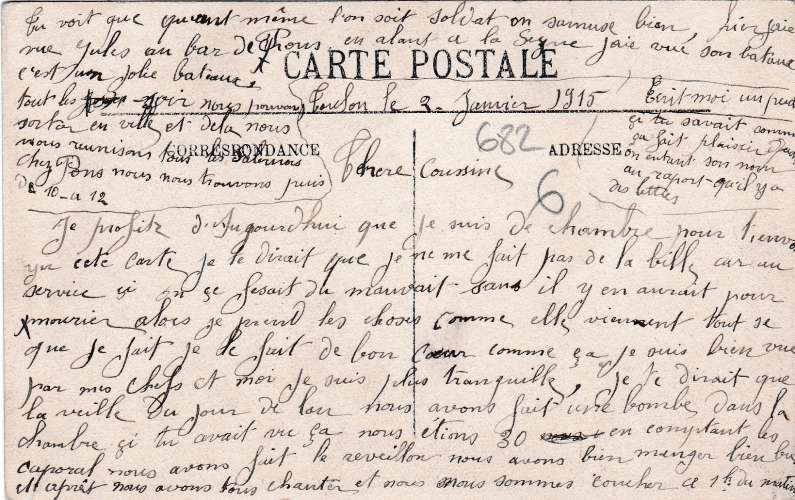 Tu voit que quant même l'on soit soldat on samuse bien, hier jaie
rue Jules au bar de Pons, en alant a la Seyne jaie vue son bataux
c'est un jolie bataux,
CARTE POSTALE
tout les soir nous pouvons
Toulon le 2 Janvier 1915
sortir en ville et dela nous
nous reunisons tous les Salernois
chez Pons nous nous trouvons puis
de 10 a 12
Ecrit moi un peut
çi tu savait comme
ça fait plaisir quan
on entant son nom
au raport qu'il y a
des lettres
CORRESPONDANCE
ADRESSE
682
6
Chere Coussine
Je profite d'Aujourdhui que je suis de chambre pour t'envo
yer cete carte, je te dirait que je ne me fait pas de la bille car au
service çi on çe fesait du mauvait sans il y en aurait pour
mourier alors je prend les choses comme elle viennent tout se
que je fait je le fait de bon cœur comme ça je suis bien vue
par mes chefs et moi je suis plus tranquille, je te dirait que
la veille du jour de lan nous avons fait une bombe dans la
chambre çi tu avait vu ça nous étions 30 en comptant les
caporal nous avons fait le reveillon nous avons bien menger bien bu
et aprêt nous avons tous chanter et nous nous sommes coucher a 1h. du matin